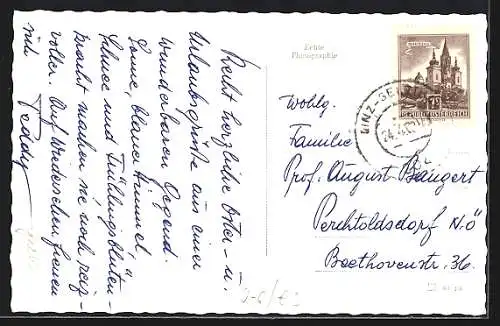 Recht herzliche Oster- u.
Urlaubsgrüße aus einer
wunderbaren Gegend.
Sonne, blauer Himmel,
Schnee und Frühlingsblüten-
pracht machen sie noch reiz-
voller. Auf Wiedersehen freuen
wir Teddy
Echte
Photographie
REPUBLIK ÖSTERREICH
LINZ-
Wohlg.
Familie
Prof. August Bangert
Perchtoldsdorf N.Ö
Beethovenstr. 36.